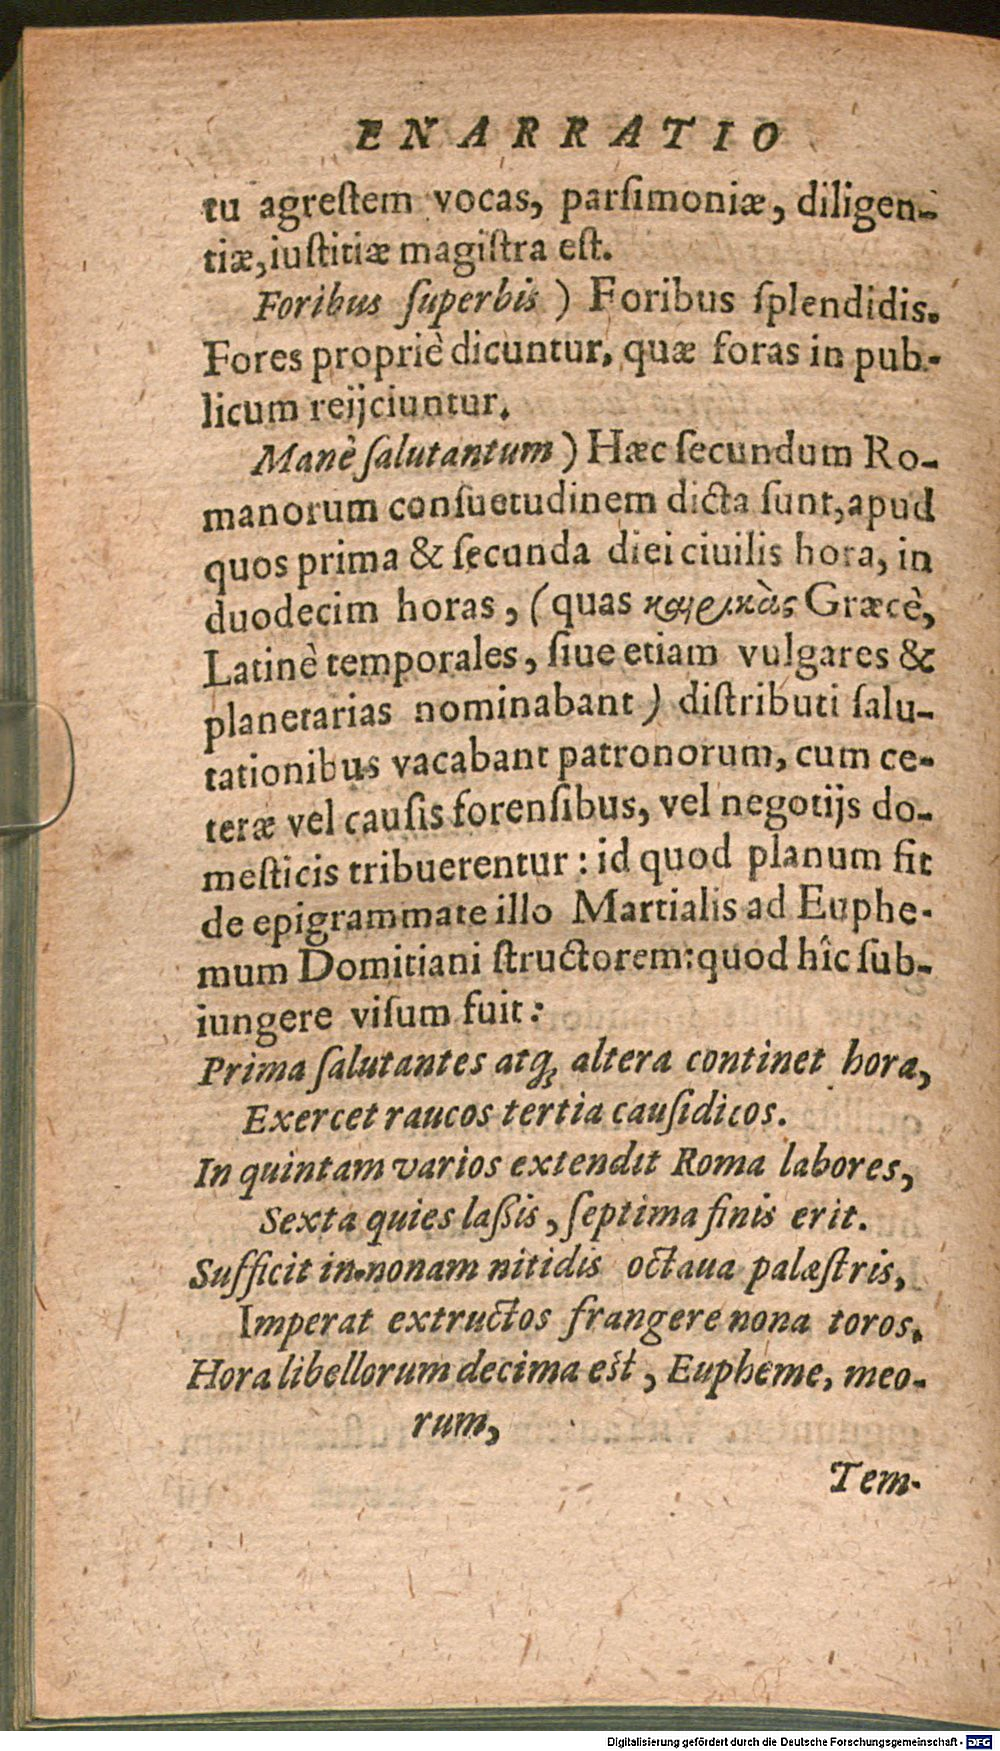 ENARRATIO
tu agreſtem vocas, parſimoniæ, diligen-
tiæ, iuſtitiæ magiſtra eſt.
Foribus ſuperbis ) Foribus ſplendidis.
Fores propriè dicuntur, quæ foras in pub-
licum reijciuntur.
Manè ſalutantum ) Hæc ſecundum Ro-
manorum conſuetudinem dicta ſunt, apud
quos prima & ſecunda diei ciuilis hora, in
duodecim horas, (quas καιρικὰς Græcè,
Latinè temporales, ſiue etiam vulgares &
planetarias nominabant) diſtributi ſalu-
tationibus vacabant patronorum, cum ce-
teræ vel cauſis forenſibus, vel negotijs do-
meſticis tribuerentur: id quod planum fit
de epigrammate illo Martialis ad Euphe-
mum Domitiani ſtructorem: quod hîc ſub-
iungere viſum fuit:
Prima ſalutantes atq; altera continet hora,
Exercet raucos tertia cauſidicos.
In quintam varios extendit Roma labores,
Sexta quies laſſis, ſeptima finis erit.
Sufficit in nonam nitidis octaua palæſtris,
Imperat extructos frangere nona toros.
Hora libellorum decima eſt, Eupheme, meo-
rum,
Tem-
Digitalisierung gefördert durch die Deutsche Forschungsgemeinschaft - DFG